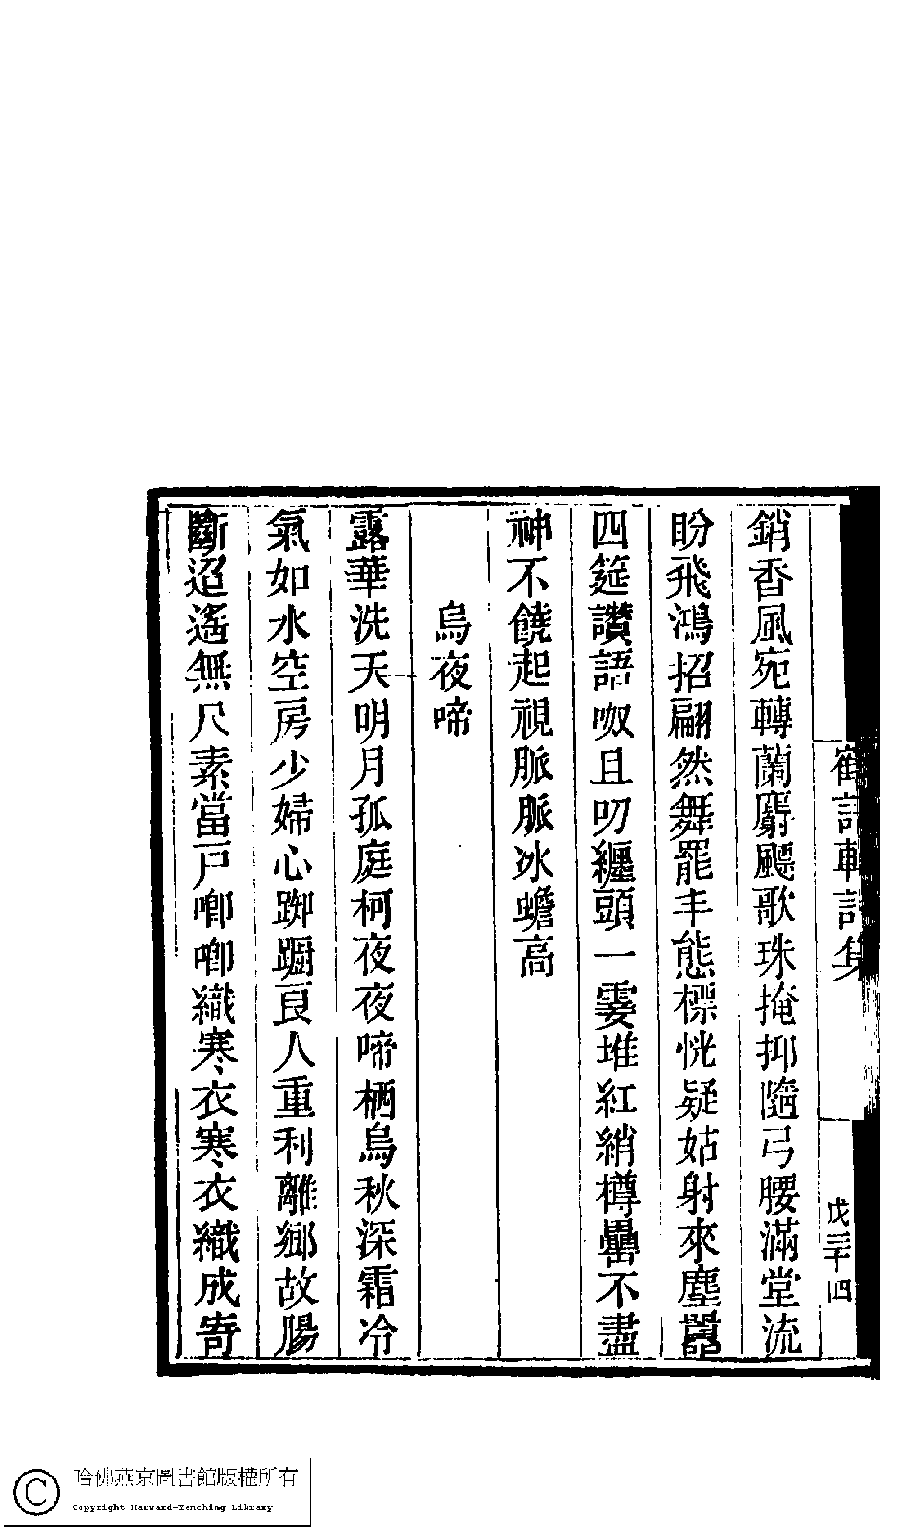 銷香風宛轉蘭麝颸歌珠掩抑隨弓腰滿堂流
盼飛鴻招翩然舞罷丰態標恍疑姑射來塵囂
四筵讚語呶且叨纏頭一霎堆紅綃樽罍不盡
神不饒起視脈脈冰蟾高
烏夜啼
露華洗天明月孤庭柯夜夜啼栖烏秋深霜冷
氣如水空房少婦心踟躕良人重利離鄉故腸
斷迢遙無尺素當戶唧唧織寒衣寒衣織成寄
集
戊三十四
哈佛燕京圖書館版權所有
Copyright Harvard-Yenching Library